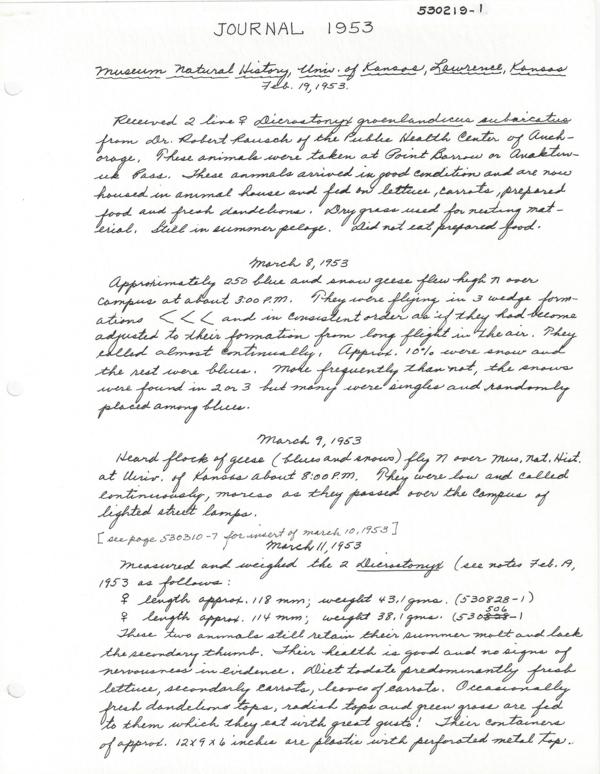 530219-1
JOURNAL 1953
Museum Natural History, Univ. of Kansas, Lawrence, Kansas
Feb. 19, 1953.
Received 2 live ♀ Dicrostonyx groenlandicus subarcatus
from Dr. Robert Rausch of the Public Health Center of Anch-
orage. These animals were taken at Point Barrow or Anaktuv-
uk Pass. These animals arrived in good condition and are now
housed in animal house and fed on lettuce, carrots, prepared
food and fresh dandelions. Dry grass used for nesting mat-
erial. Still in summer pelage. Did not eat prepared food.
March 8, 1953
Approximately 250 blue and snow geese flew high N over
campus at about 3:00 P.M. They were flying in 3 wedge form-
ations < < < and in consistent order as if they had become
adjusted to their formation from long flight in the air. They
called almost continually. Approx. 10% were snow and
the rest were blues. More frequently than not, the snows
were found in 2 or 3 but many were singles and randomly
placed among blues.
March 9, 1953
Heard flock of geese (blues and snows) fly N over Mus. Nat. Hist.
at Univ. of Kansas about 8:00 P.M. They were low and called
continuously, moreso as they passed over the campus of
lighted street lamps.
[see page 530310-7 for insert of march 10, 1953]
March 11, 1953
Measured and weighed the 2 Dicrostonyx (see notes Feb. 19,
1953 as follows:
♀ length approx. 118 mm; weight 43.1 gms. (530828-1)
♀ length approx. 114 mm; weight 38.1 gms. (530506-1
These two animals still retain their summer molt and lack
the secondary thumb. Their health is good and no signs of
nervousness in evidence. Diet to date predominantly fresh
lettuce, secondarly carrots, leaves of carrots. Occasionally
fresh dandelions tops, radish tops and green grass are fed
to them which they eat with great gusto! Their containers
of approx. 12x9x6 inches are plastic with perforated metal top.